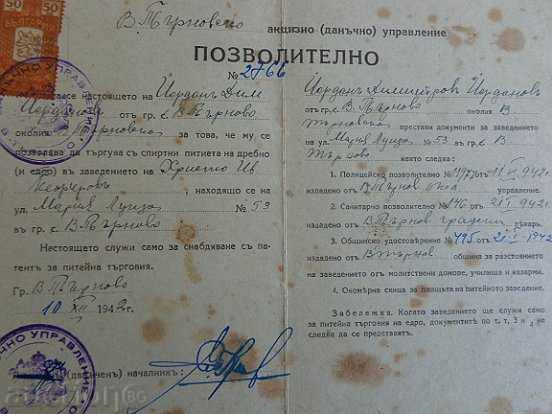 В. Търновско акцизно (данъчно) управление
ПОЗВОЛИТЕЛНО
№ 2766
настоящето на Йордан Дим
Йорданов от гр. с. В. Търново
околия Търновска за това, че му се
позволява да търгува със спиртни питиета на дребно
(и едро) въ заведението на Христо Ив
находящо се на
ул. Мария Луиза № 53
въ гр. с. В. Търново
Настоящето служи само за снабдяване съ па-
тентъ за питейна търговия.
Гр. В. Търново
10 XII 1942 г.
(данъченъ) началникъ:
Йорданъ Димитровъ Йорданов
отъ гр. с. В. Търново околия В
Търновска престави документи за заведението
на ул. Мария Луиза № 53 въ гр. В
Търново както следва:
1. Полицейско позволително № отъ 942
издадено отъ В Търнов окол управление.
2. Санитарно позволително № 146 отъ 21 942
издадено отъ В Търнов градски лѣкарь.
3. Общинско удостовѣрение № 495 отъ 21 1942
издадено отъ В Търнов община за разстоянието
на заведението отъ молитвени домове, училища и казарми.
4. Окомѣрна скица за плацътъ на питейното заведение.
Забележка. Когато заведението ще служи само
за питейна търговия на едро, документите по т. т. 3 и 4 не
следва да се представятъ.
50 50
БЪЛГАРИЯ
ДАНЪЧНО УПРАВЛЕНИЕ
ДАНЪЧНО УПРАВЛЕНИЕ